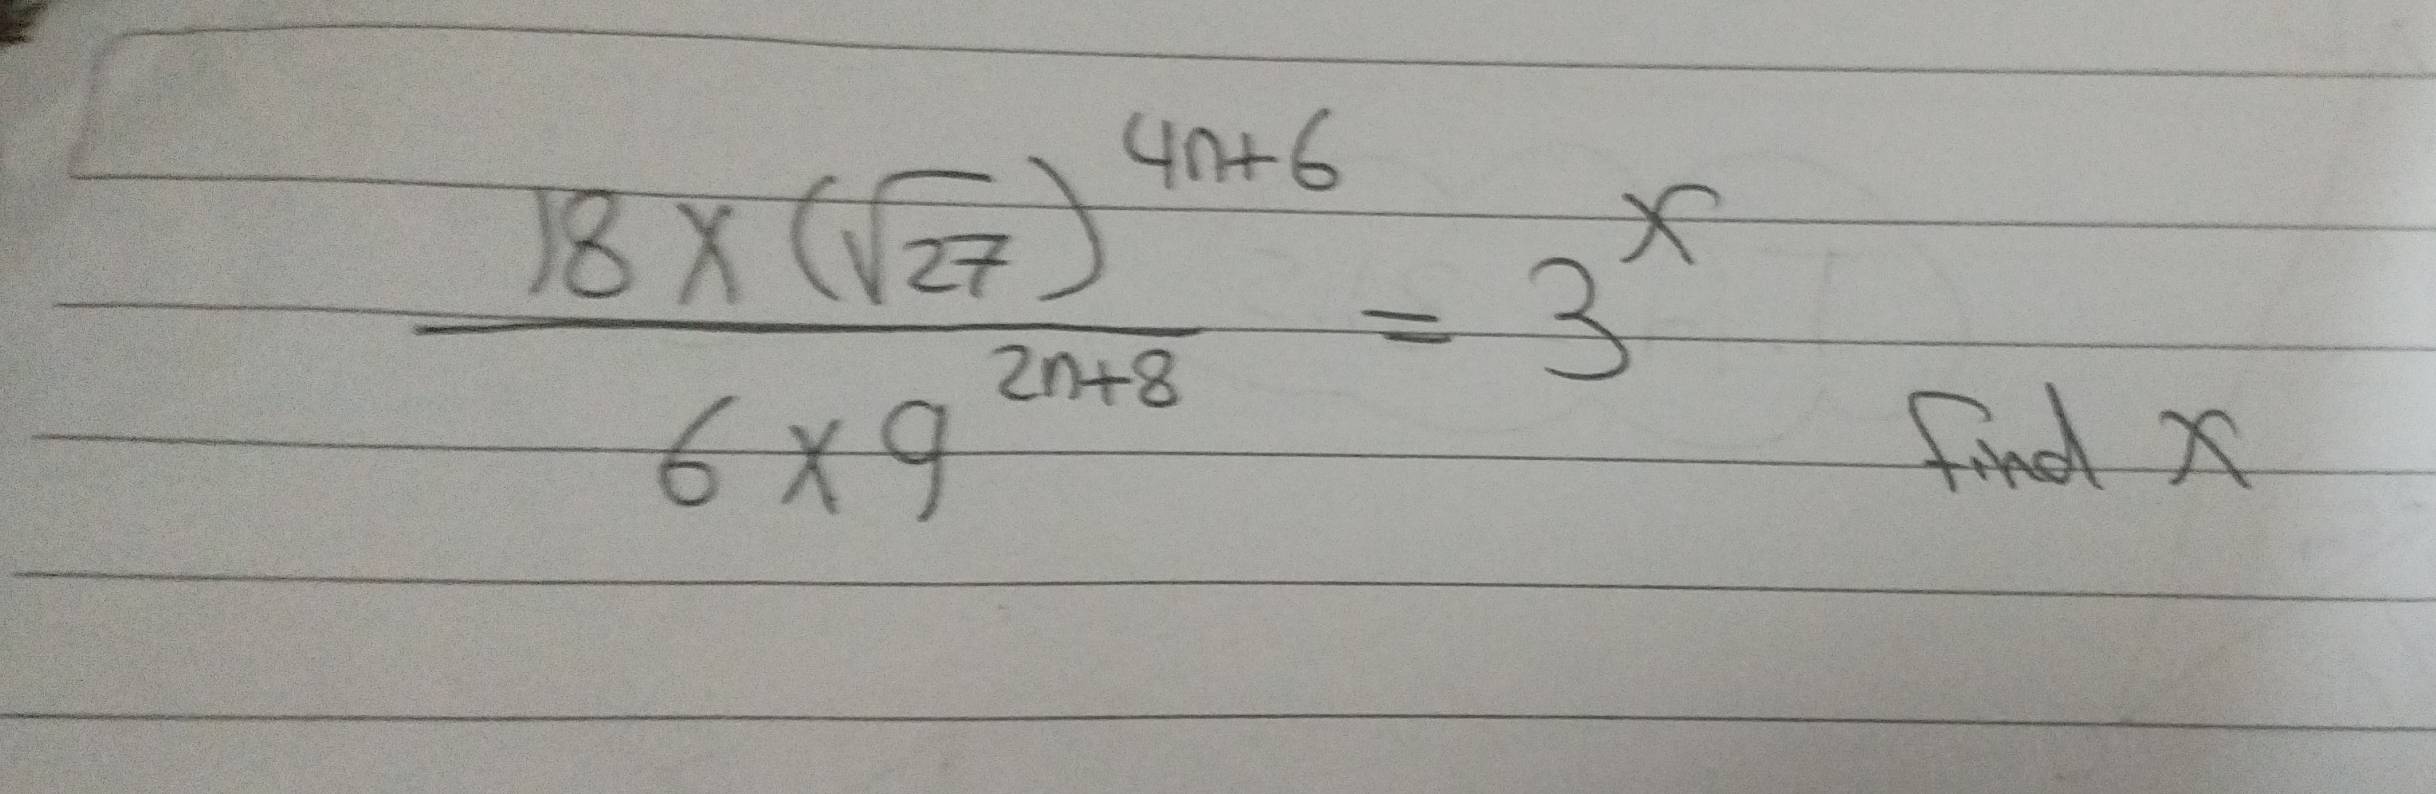 (18 × (√27)^(4n+6)) / (6 × 9^(2n+8)) = 3^x
find x